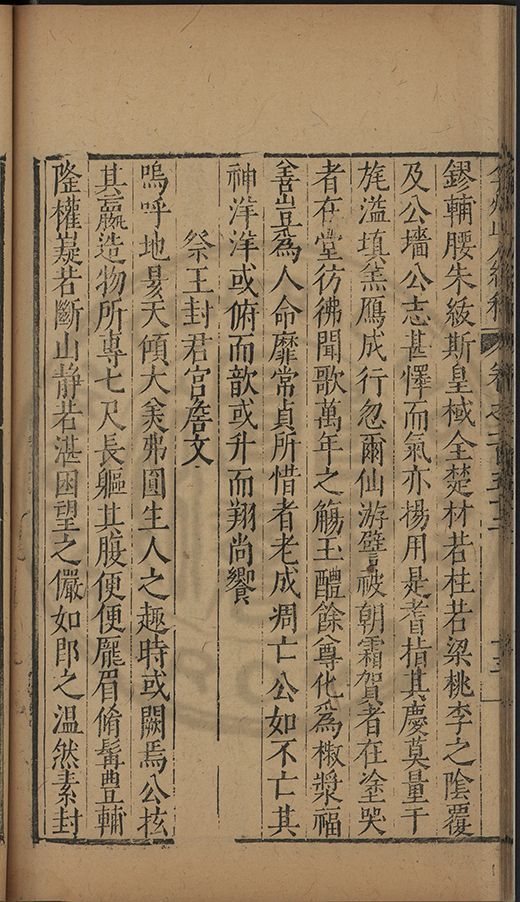 卷之一百五十三
十三
鏐輔腰朱綬斯皇棫全楚材若柱若梁桃李之陰覆
及公墻公志甚懌而氣亦揚用是耆指其慶莫量干
旄溢填羔鴈成行忽爾仙游譬被朝霜賀者在塗哭
者在堂彷彿聞歌萬年之觴玉醴餘尊化為椒漿福
善豈為人命靡常貞所惜者老成凋亡公如不亡其
神洋洋或俯而歆或升而翔尚饗
祭王封君官詹文
嗚呼地昃天傾大美弗圓生人之趣時或闕焉公抾
其羸造物所專七尺長軀其腹便便龐眉脩髯豐輔
隆權嶷若斷山静若湛囦望之儼如即之温然素封